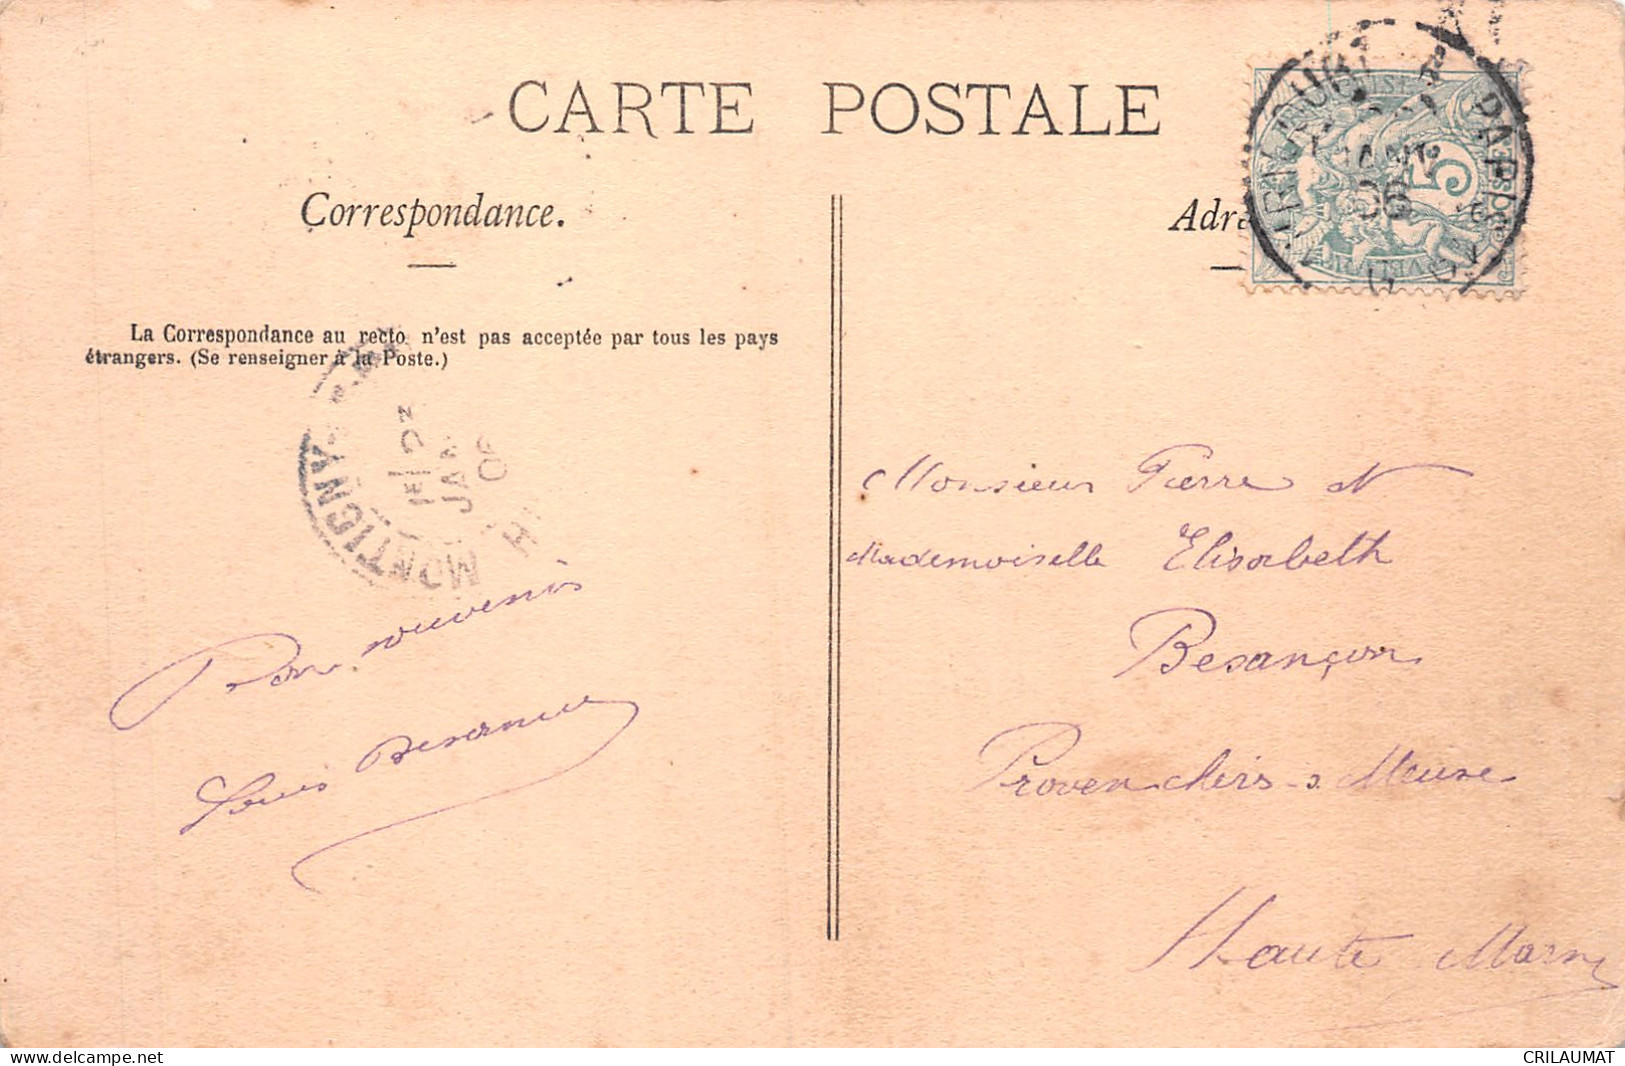 CARTE POSTALE
Correspondance.
Adre
La Correspondance au recto n'est pas acceptée par tous les pays
étrangers. (Se renseigner à la Poste.)
PARIS
5
MONTIGNY
JAN
06
Bon souvenir
Louis
Monsieur Pierre et
Mademoiselle Elisabeth
Besançon
Provenchères-s-Meuse
Haute Marne
delcampe.net
CRILAUMAT